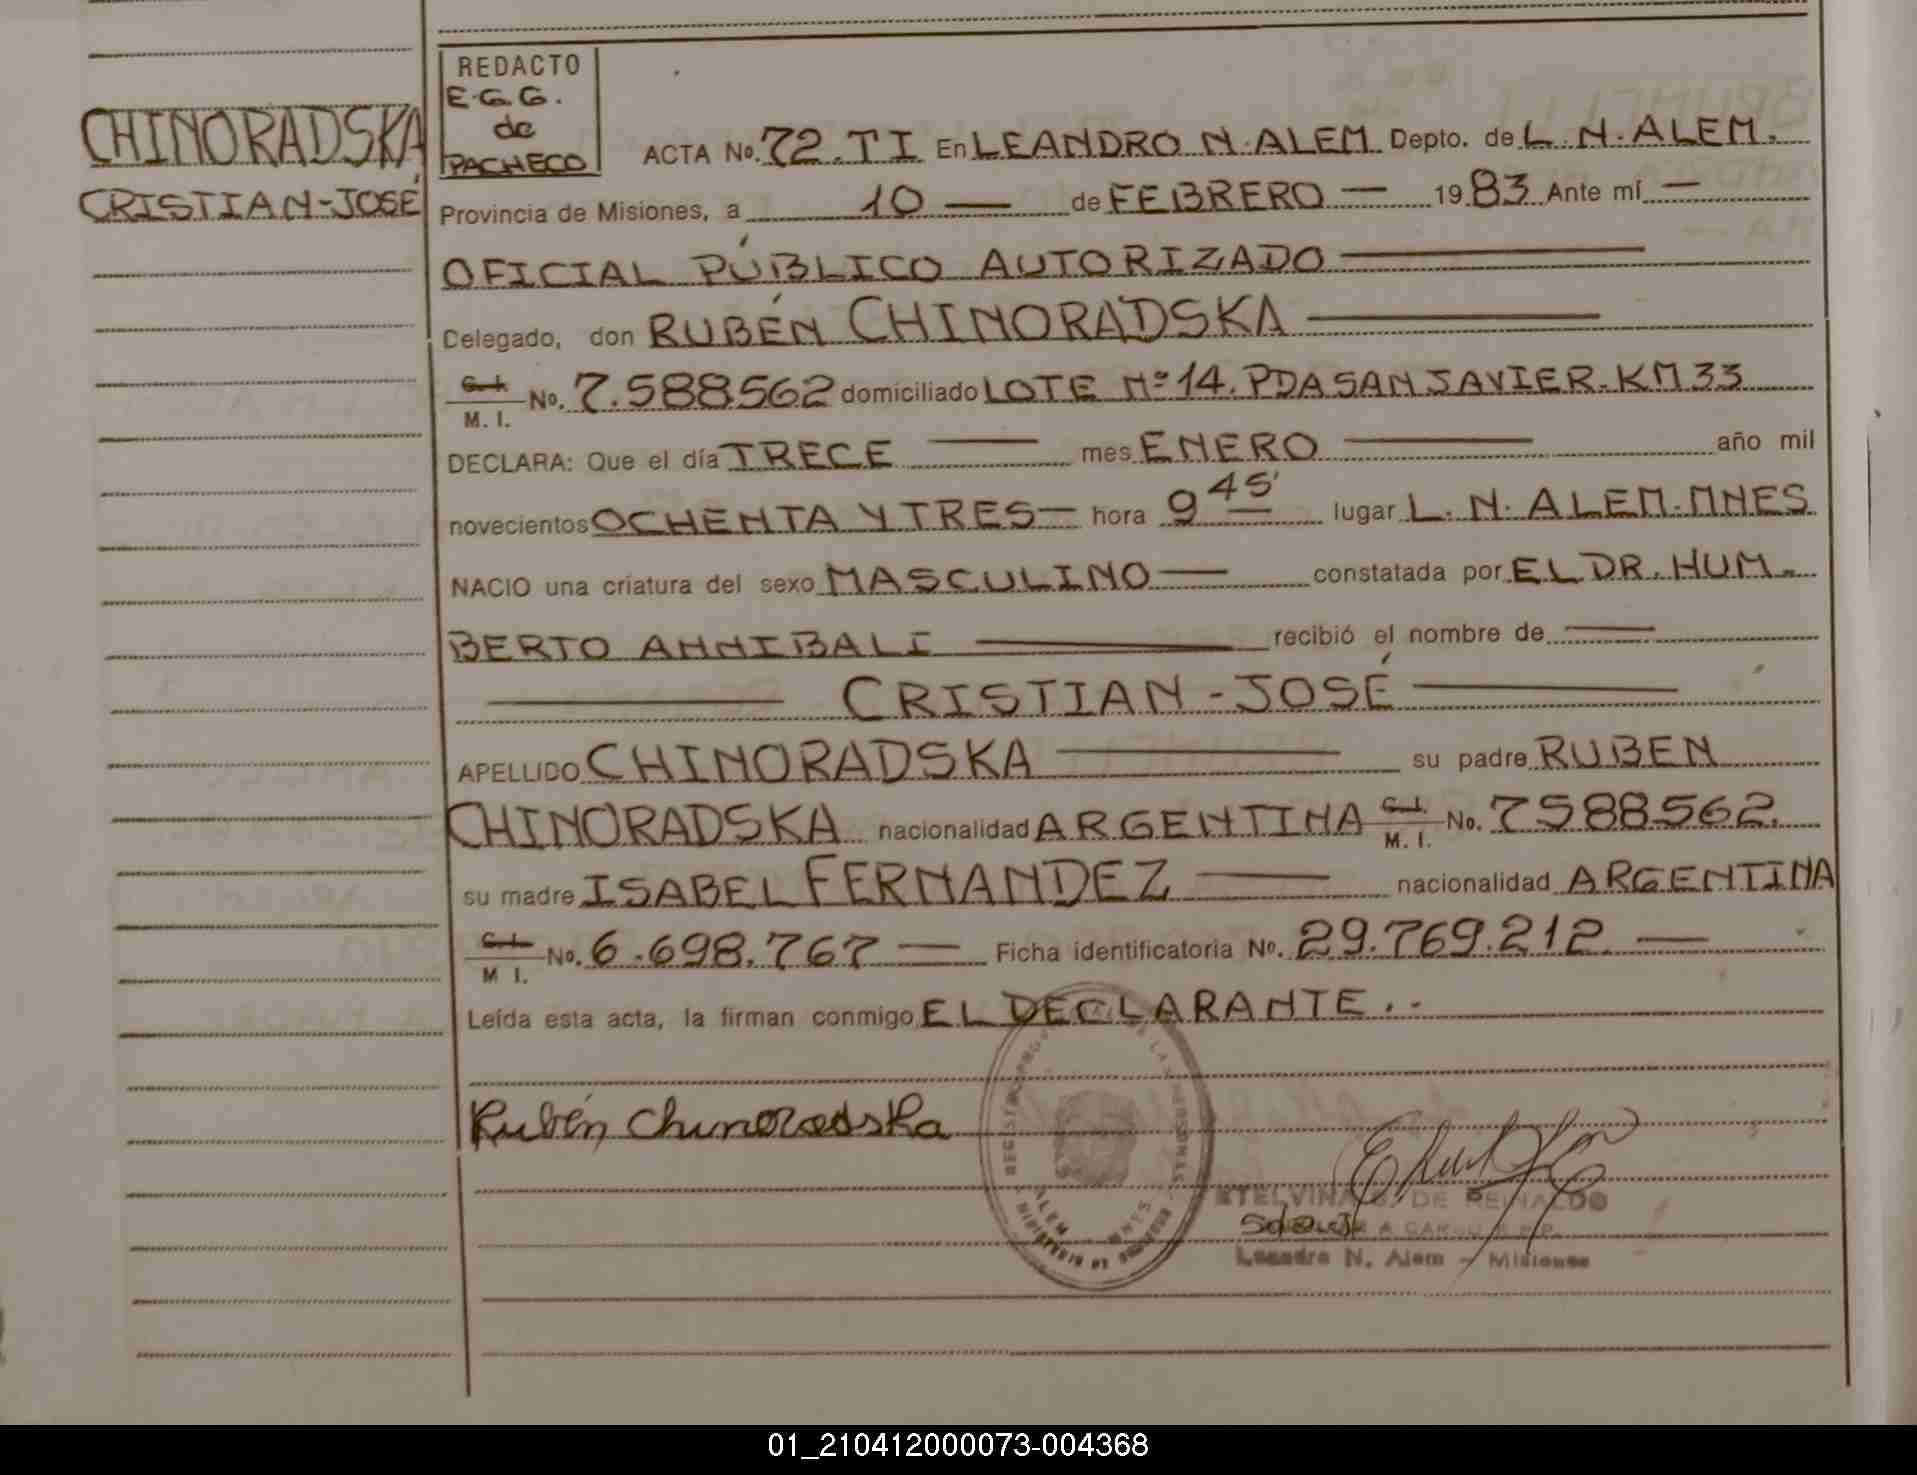 CHINORADSKA
CRISTIAN-JOSÉ
REDACTO
E.G.G.
de
PACHECO
ACTA No. 72.TI En LEANDRO N. ALEM Depto. de L. N. ALEM.
Provincia de Misiones, a 10 — de FEBRERO — 1983 Ante mí —
OFICIAL PÚBLICO AUTORIZADO —
Delegado, don RUBÉN CHINORADSKA —
C.I. M. I. No. 7.588562 domiciliado LOTE Nº 14. PDA SAN JAVIER. KM 33
DECLARA: Que el día TRECE — mes ENERO — año mil
novecientos OCHENTA Y TRES — hora 9 45' lugar L. N. ALEM. MNES
NACIO una criatura del sexo MASCULINO — constatada por EL DR. HUM-
BERTO ANNIBALI — recibió el nombre de —
— CRISTIAN - JOSÉ —
APELLIDO CHINORADSKA — su padre RUBEN
CHINORADSKA nacionalidad ARGENTINA C.I. M. I. No. 7588562.
su madre ISABEL FERNANDEZ — nacionalidad ARGENTINA
C.I. M I. No. 6.698.767 — Ficha identificatoria No. 29.769.212. —
Leída esta acta, la firman conmigo EL DECLARANTE. -
Rubén Chinoradska
ETELVINA DE REINALDO
A CARGO
Leandro N. Alem - Misiones
01_210412000073-004368